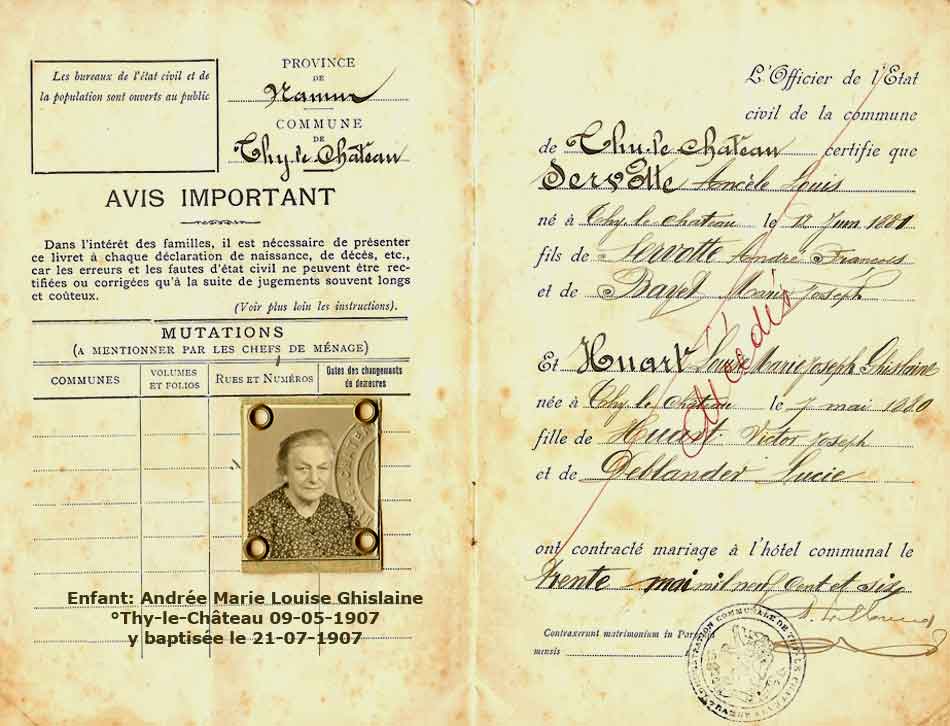 Les bureaux de l'état civil et de
la population sont ouverts au public
PROVINCE
DE
Namur
COMMUNE
DE
Thy-le-Château
AVIS IMPORTANT
Dans l'intérêt des familles, il est nécessaire de présenter
ce livret à chaque déclaration de naissance, de décès, etc.,
car les erreurs et les fautes d'état civil ne peuvent être rec-
tifiées ou corrigées qu'à la suite de jugements souvent longs
et coûteux.
(Voir plus loin les instructions).
MUTATIONS
(A MENTIONNER PAR LES CHEFS DE MÉNAGE)
COMMUNES
VOLUMES
ET FOLIOS
RUES ET NUMÉROS
Dates des changements
de demeures
Enfant: Andrée Marie Louise Ghislaine
°Thy-le-Château 09-05-1907
y baptisée le 21-07-1907
L'Officier de l'Etat
civil de la commune
de Thy-le château certifie que
Servotte Ancèle Louis
né à Thy-le-chateau le 12 Juin 1881
fils de Servotte André François
et de Brayet Marie Joseph
Et Huart Louise Marie Joseph Ghislaine
née à Thy-le-Château le 7 mai 1880
fille de Huart Victor Joseph
et de Deblander Lucie
ont contracté mariage à l'hôtel communal le
trente mai mil neuf cent et six
Contraxerunt matrimonium in
mensis
ADMINISTRATION COMMUNALE DE THY-LE-CHATEAU